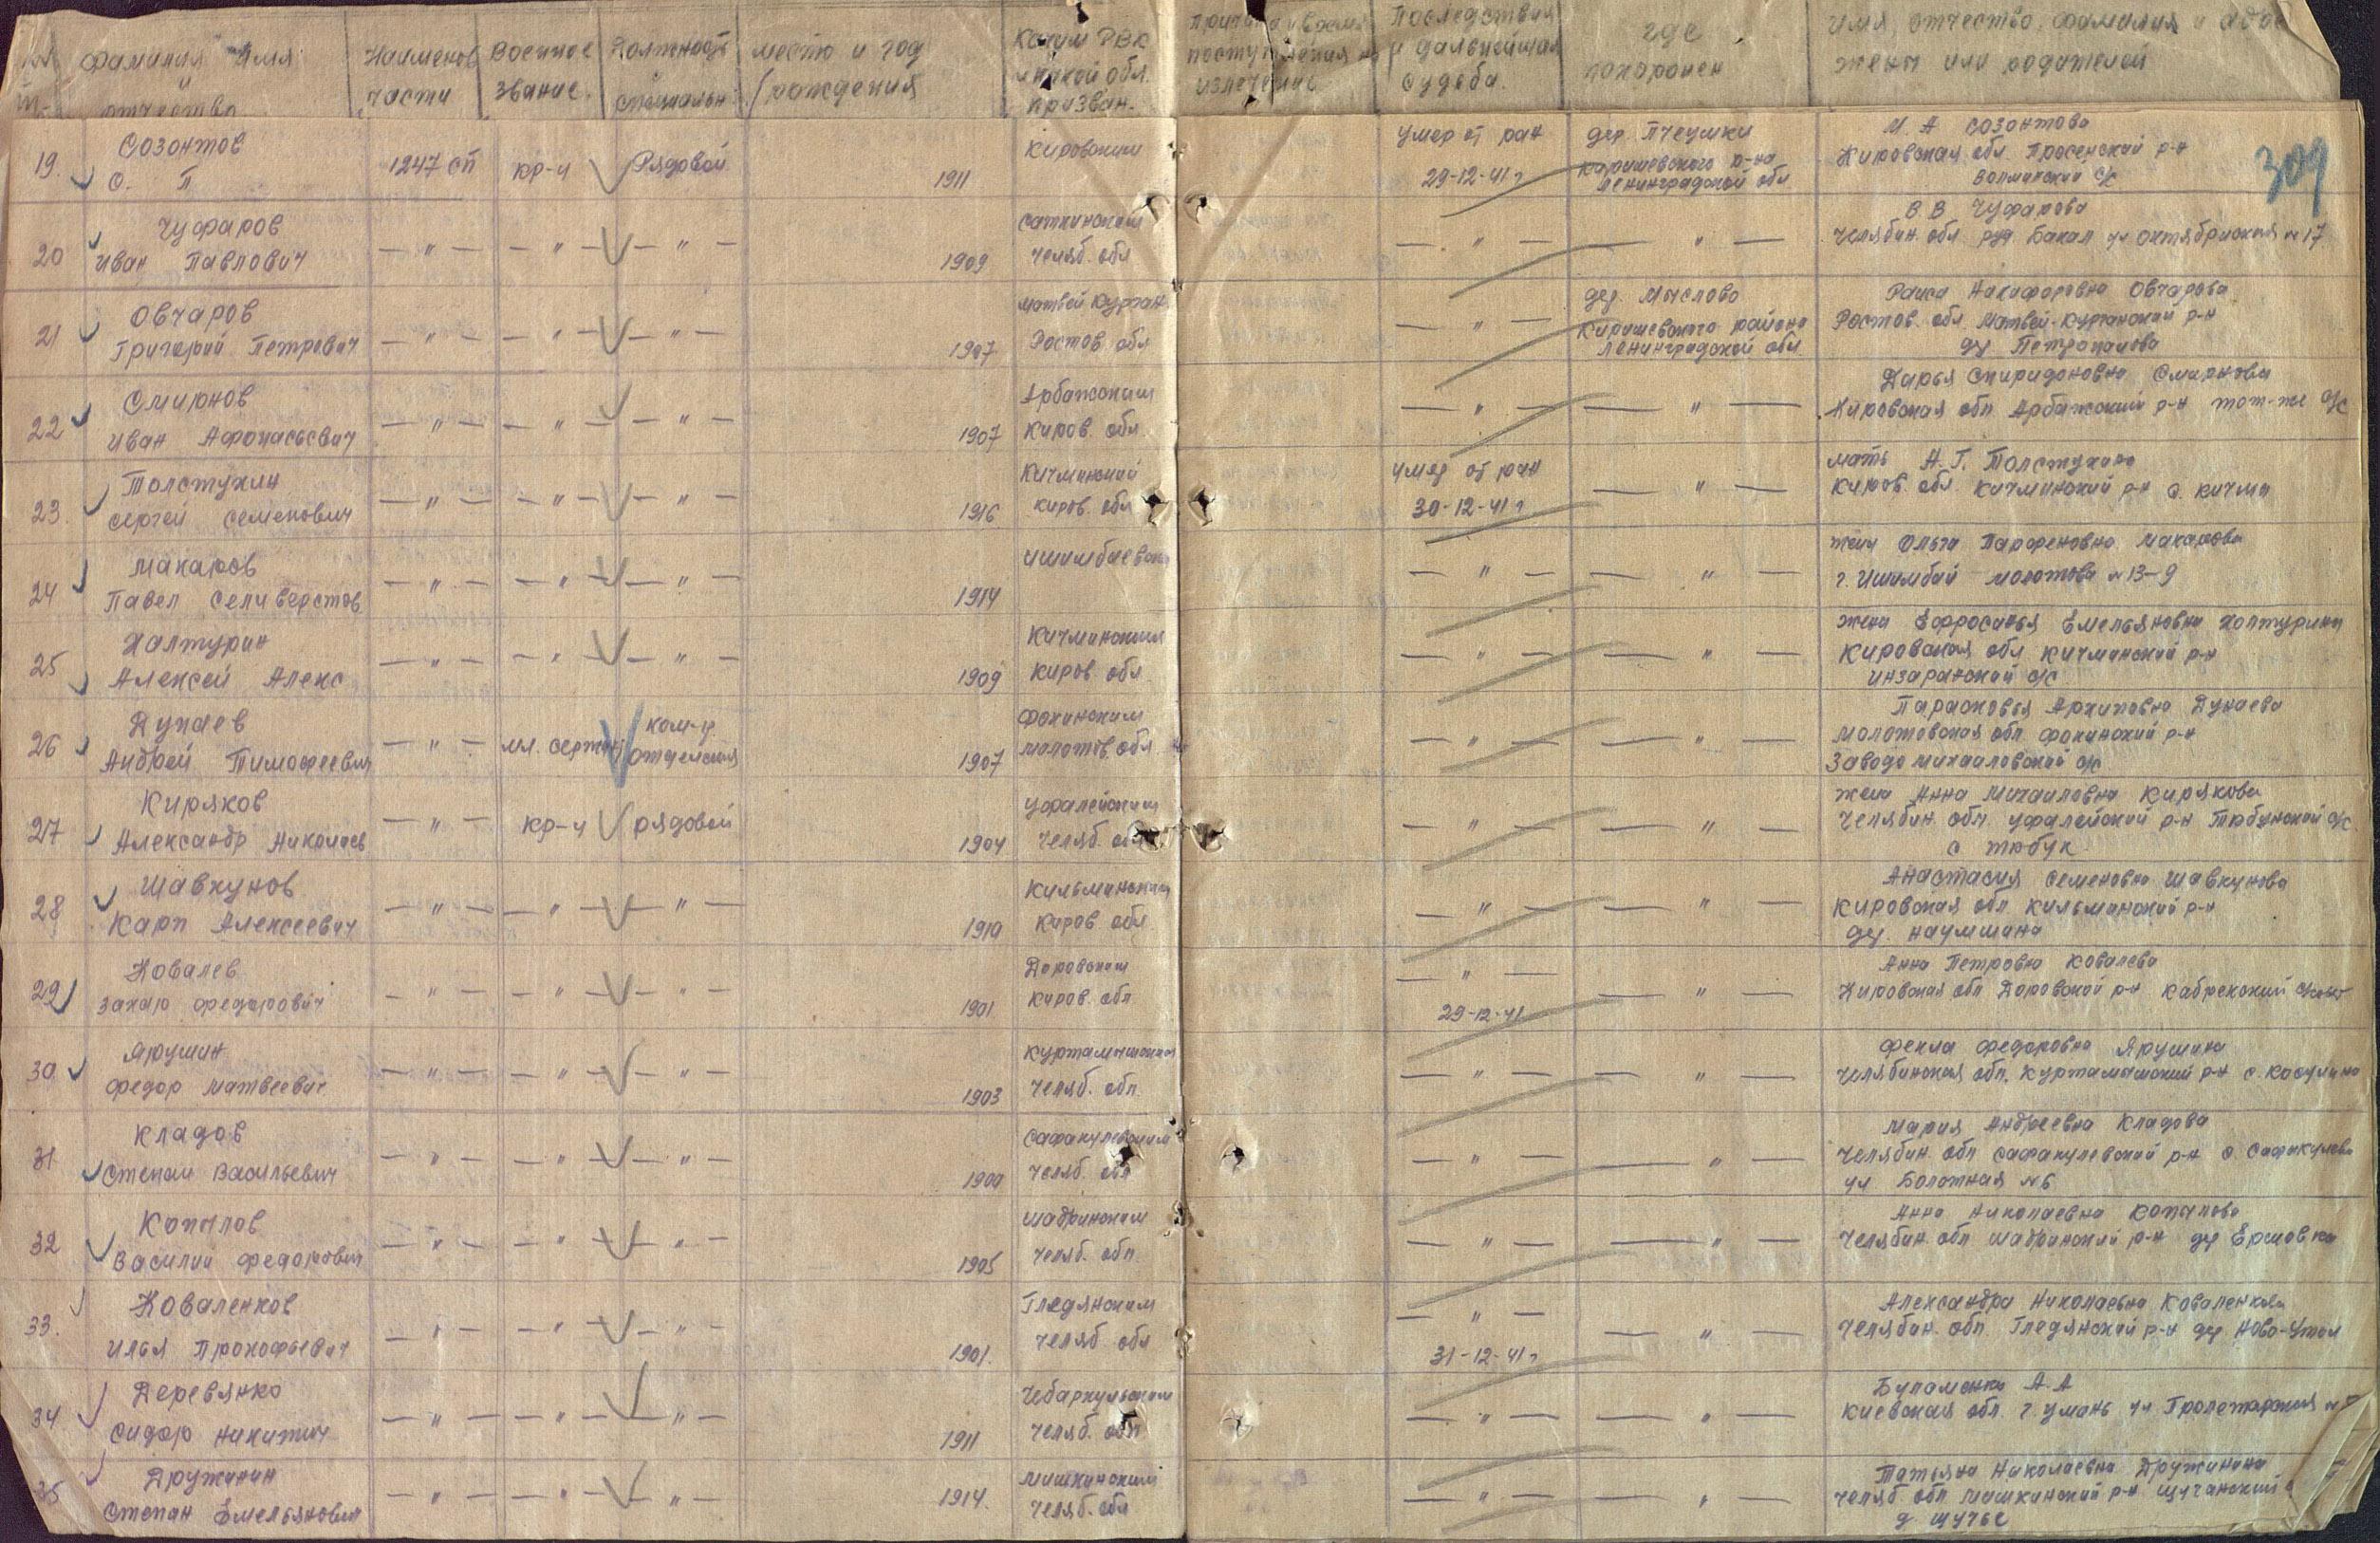 фамилия имя и отчество
Наименов. части
Военное звание.
Должность специальн.
место и год рождения
Каким РВК и какой обл. призван.
причина и время поступления на излечение
Последствия и дальнейшая судьба.
где похоронен
имя, отчество, фамилия и адрес жены или родителей
309
19. Созонтов
О. П
1247 сп кр-ц Рядовой 1911
Кировским
умер от ран
29-12-41 г
дер. Пчеушки
Киришевского р-на
Ленинградской обл
М. А Созонтова
Кировская обл. р-н
с/с
20 Чуфаров
Иван Павлович
— " — — " — — " — 1909
Саткинским
Челяб. обл
— " — — " —
В В Чуфарова
Челябин. обл руд Бакал ул Октябрьская № 17
21 Овчаров
Григорий Петрович
— " — — " — — " — 1907
Матвей Курган
Ростов. обл
— " —
дер. Мыслово
Киришевского района
Ленинградской обл
Раиса Никифоровна Овчарова
Ростов. обл. Матвей-Курганский р-н
22 Смирнов
Иван Афонасьевич
— " — — " — — " — 1907
Арбажским
Киров. обл
— " — — " —
Дарья Спиридоновна Смирнова
Кировская обл Арбажский р-н тот-же с/с
23. Толстухин
Сергей Семенович
— " — — " — — " — 1916
Кичминский
Киров. обл
умер от ран
30-12-41 г
— " —
мать А. Г. Толстухина
Киров. обл. Кичминский р-н с. Кичма
24 Макаров
Павел Селиверстов
— " — — " — — " — 1914
— " — — " —
жена Ольга Парфеновна Макарова
г. Ишимбай Молотова № 13-9
25 Халтурин
Алексей Алекс
— " — — " — — " — 1909
Кичминским
Киров. обл
— " — — " —
жена Ефросинья Емельяновна Халтурина
Кировская обл Кичминский р-н
с/с
26 Дунаев
Андрей Тимофеевич
— " — мл. сержан ком-р
отделения 1907
Фокинским
Молотов. обл
— " — — " —
Парасковья Архиповна Дунаева
Молотовская обл Фокинский р-н
Заводо Михайловский с/с
27 Киряков
Александр Николаев
— " — кр-ц рядовой 1904
Уфалейским
Челяб. обл
— " — — " —
жена Анна Михайловна Кирякова
Челябин. обл. Уфалейский р-н с/с
с Тюбук
28 Шавкунов
Карп Алексеевич
— " — — " — — " — 1910
Кильмезским
Киров обл
— " — — " —
Анастасия Семеновна Шавкунова
Кировская обл р-н
29 Ковалев
Захар Федорович
— " — — " — — " — 1901
Даровским
Киров. обл
— " —
29-12-41
— " —
Анна Петровна Ковалева
Кировская обл Даровской р-н
30 Ярушин
Федор Матвеевич
— " — — " — — " — 1903
Куртамышским
Челяб. обл.
— " — — " —
Фекла Федоровна Ярушина
Челябинская обл. Куртамышский р-н с. Косулино
31 Кладов
Степан Васильевич
— " — — " — — " — 1900
Сафакулевским
Челяб. обл
— " — — " —
Мария Андреевна Кладова
Челябин. обл Сафакулевский р-н с. Сафакулево
ул Болотная № 6
32 Копылов
Василий Федорович
— " — — " — — " — 1905
Шадринским
Челяб. обл.
— " — — " —
Анна Николаевна Копылова
Челябин. обл Шадринский р-н дер Ершовка
33. Коваленков
Илья Прокофьевич
— " — — " — — " — 1901.
Глядянским
Челяб обл
— " —
31-12-41 г
— " —
Александра Николаевна Коваленкова
Челябин. обл. Глядянский р-н дер
34 Деревянко
Сидор Никитич
— " — — " — — " — 1911
Чебаркульским
Челяб. обл
— " — — " —
А. А
Киевская обл. г. Умань ул Пролетарская
35 Дружинин
Степан Емельянович
— " — — " — — " — 1914.
Мишкинским
Челяб. обл
— " — — " —
Татьяна Николаевна Дружинина
Челяб обл Мишкинский р-н
д Щучье